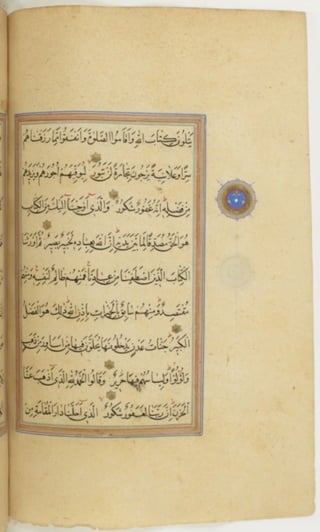 يَتْلُونَ كِتَابَ اللَّهِ وَأَقَامُوا الصَّلَوةَ وَأَنفَقُوا مِمَّا رَزَقْنَاهُمْ
سِرًّا وَعَلَانِيَةً يَرْجُونَ تِجَارَةً لَن تَبُورَ لِيُوَفِّيَهُمْ أُجُورَهُمْ وَيَزِيدَهُمْ
مِن فَضْلِهِ إِنَّهُ غَفُورٌ شَكُورٌ وَالَّذِي أَوْحَيْنَا إِلَيْكَ مِنَ الْكِتَابِ
هُوَ الْحَقُّ مُصَدِّقًا لِمَا بَيْنَ يَدَيْهِ إِنَّ اللَّهَ بِعِبَادِهِ لَخَبِيرٌ بَصِيرٌ ثُمَّ أَوْرَثْنَا
الْكِتَابَ الَّذِينَ اصْطَفَيْنَا مِنْ عِبَادِنَا فَمِنْهُمْ ظَالِمٌ لِنَفْسِهِ وَمِنْهُمْ
مُقْتَصِدٌ وَمِنْهُمْ سَابِقٌ بِالْخَيْرَاتِ بِإِذْنِ اللَّهِ ذَلِكَ هُوَ الْفَضْلُ
الْكَبِيرُ جَنَّاتُ عَدْنٍ يَدْخُلُونَهَا يُحَلَّوْنَ فِيهَا مِنْ أَسَاوِرَ مِن ذَهَبٍ
وَلُؤْلُؤًا وَلِبَاسُهُمْ فِيهَا حَرِيرٌ وَقَالُوا الْحَمْدُ لِلَّهِ الَّذِي أَذْهَبَ عَنَّا
الْحَزَنَ إِنَّ رَبَّنَا لَغَفُورٌ شَكُورٌ الَّذِي أَحَلَّنَا دَارَ الْمُقَامَةِ مِن